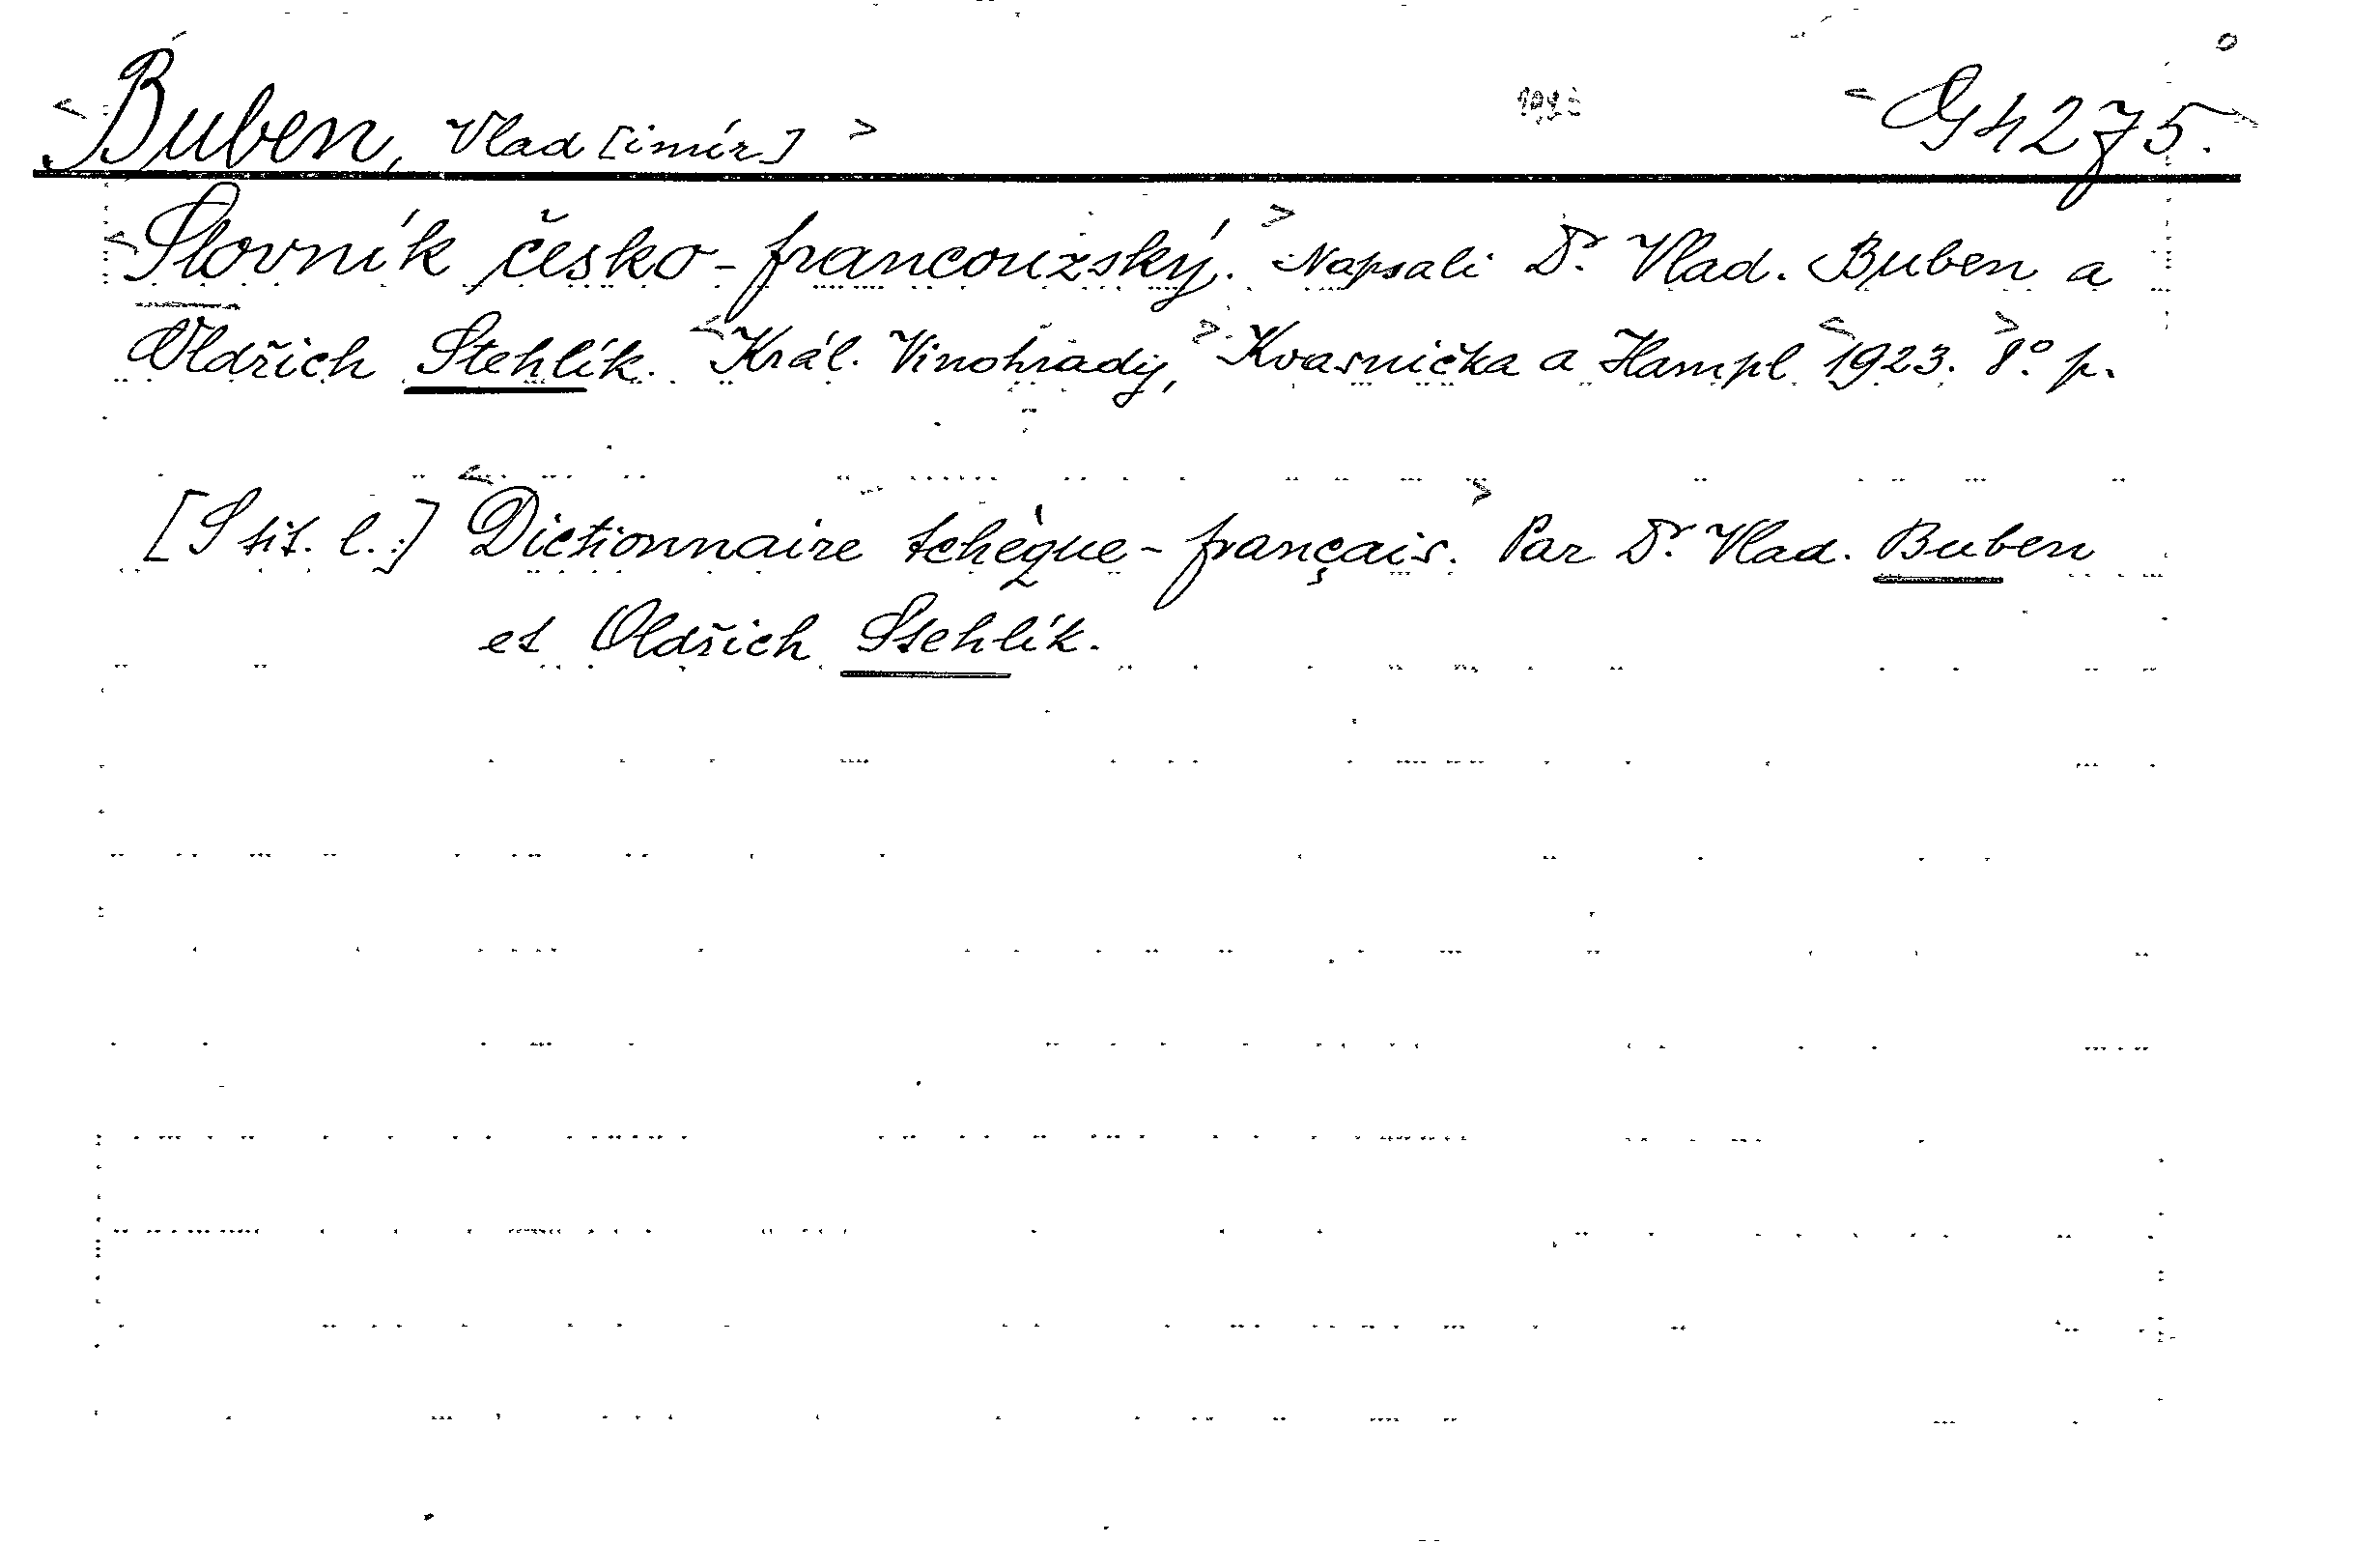 Buben, Vlad[imír] G 4275.
Slovník česko-francouzský. Napsali Dr. Vlad. Buben a
Oldřich Stehlík. Král. Vinohrady, Kvasnička a Hampl 1923. 8° p.
[S tit. l.:] Dictionnaire tchèque-français. Par Dr. Vlad. Buben
et Oldřich Stehlík.